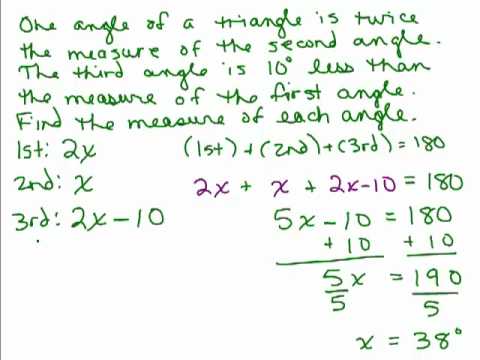 One angle of a triangle is twice
the measure of the second angle.
The third angle is 10° less than
the measure of the first angle.
Find the measure of each angle.
1st: 2x (1st) + (2nd) + (3rd) = 180
2nd: x 2x + x + 2x-10 = 180
3rd: 2x - 10 5x - 10 = 180
+ 10 + 10
5x = 190
5 5
x = 38°